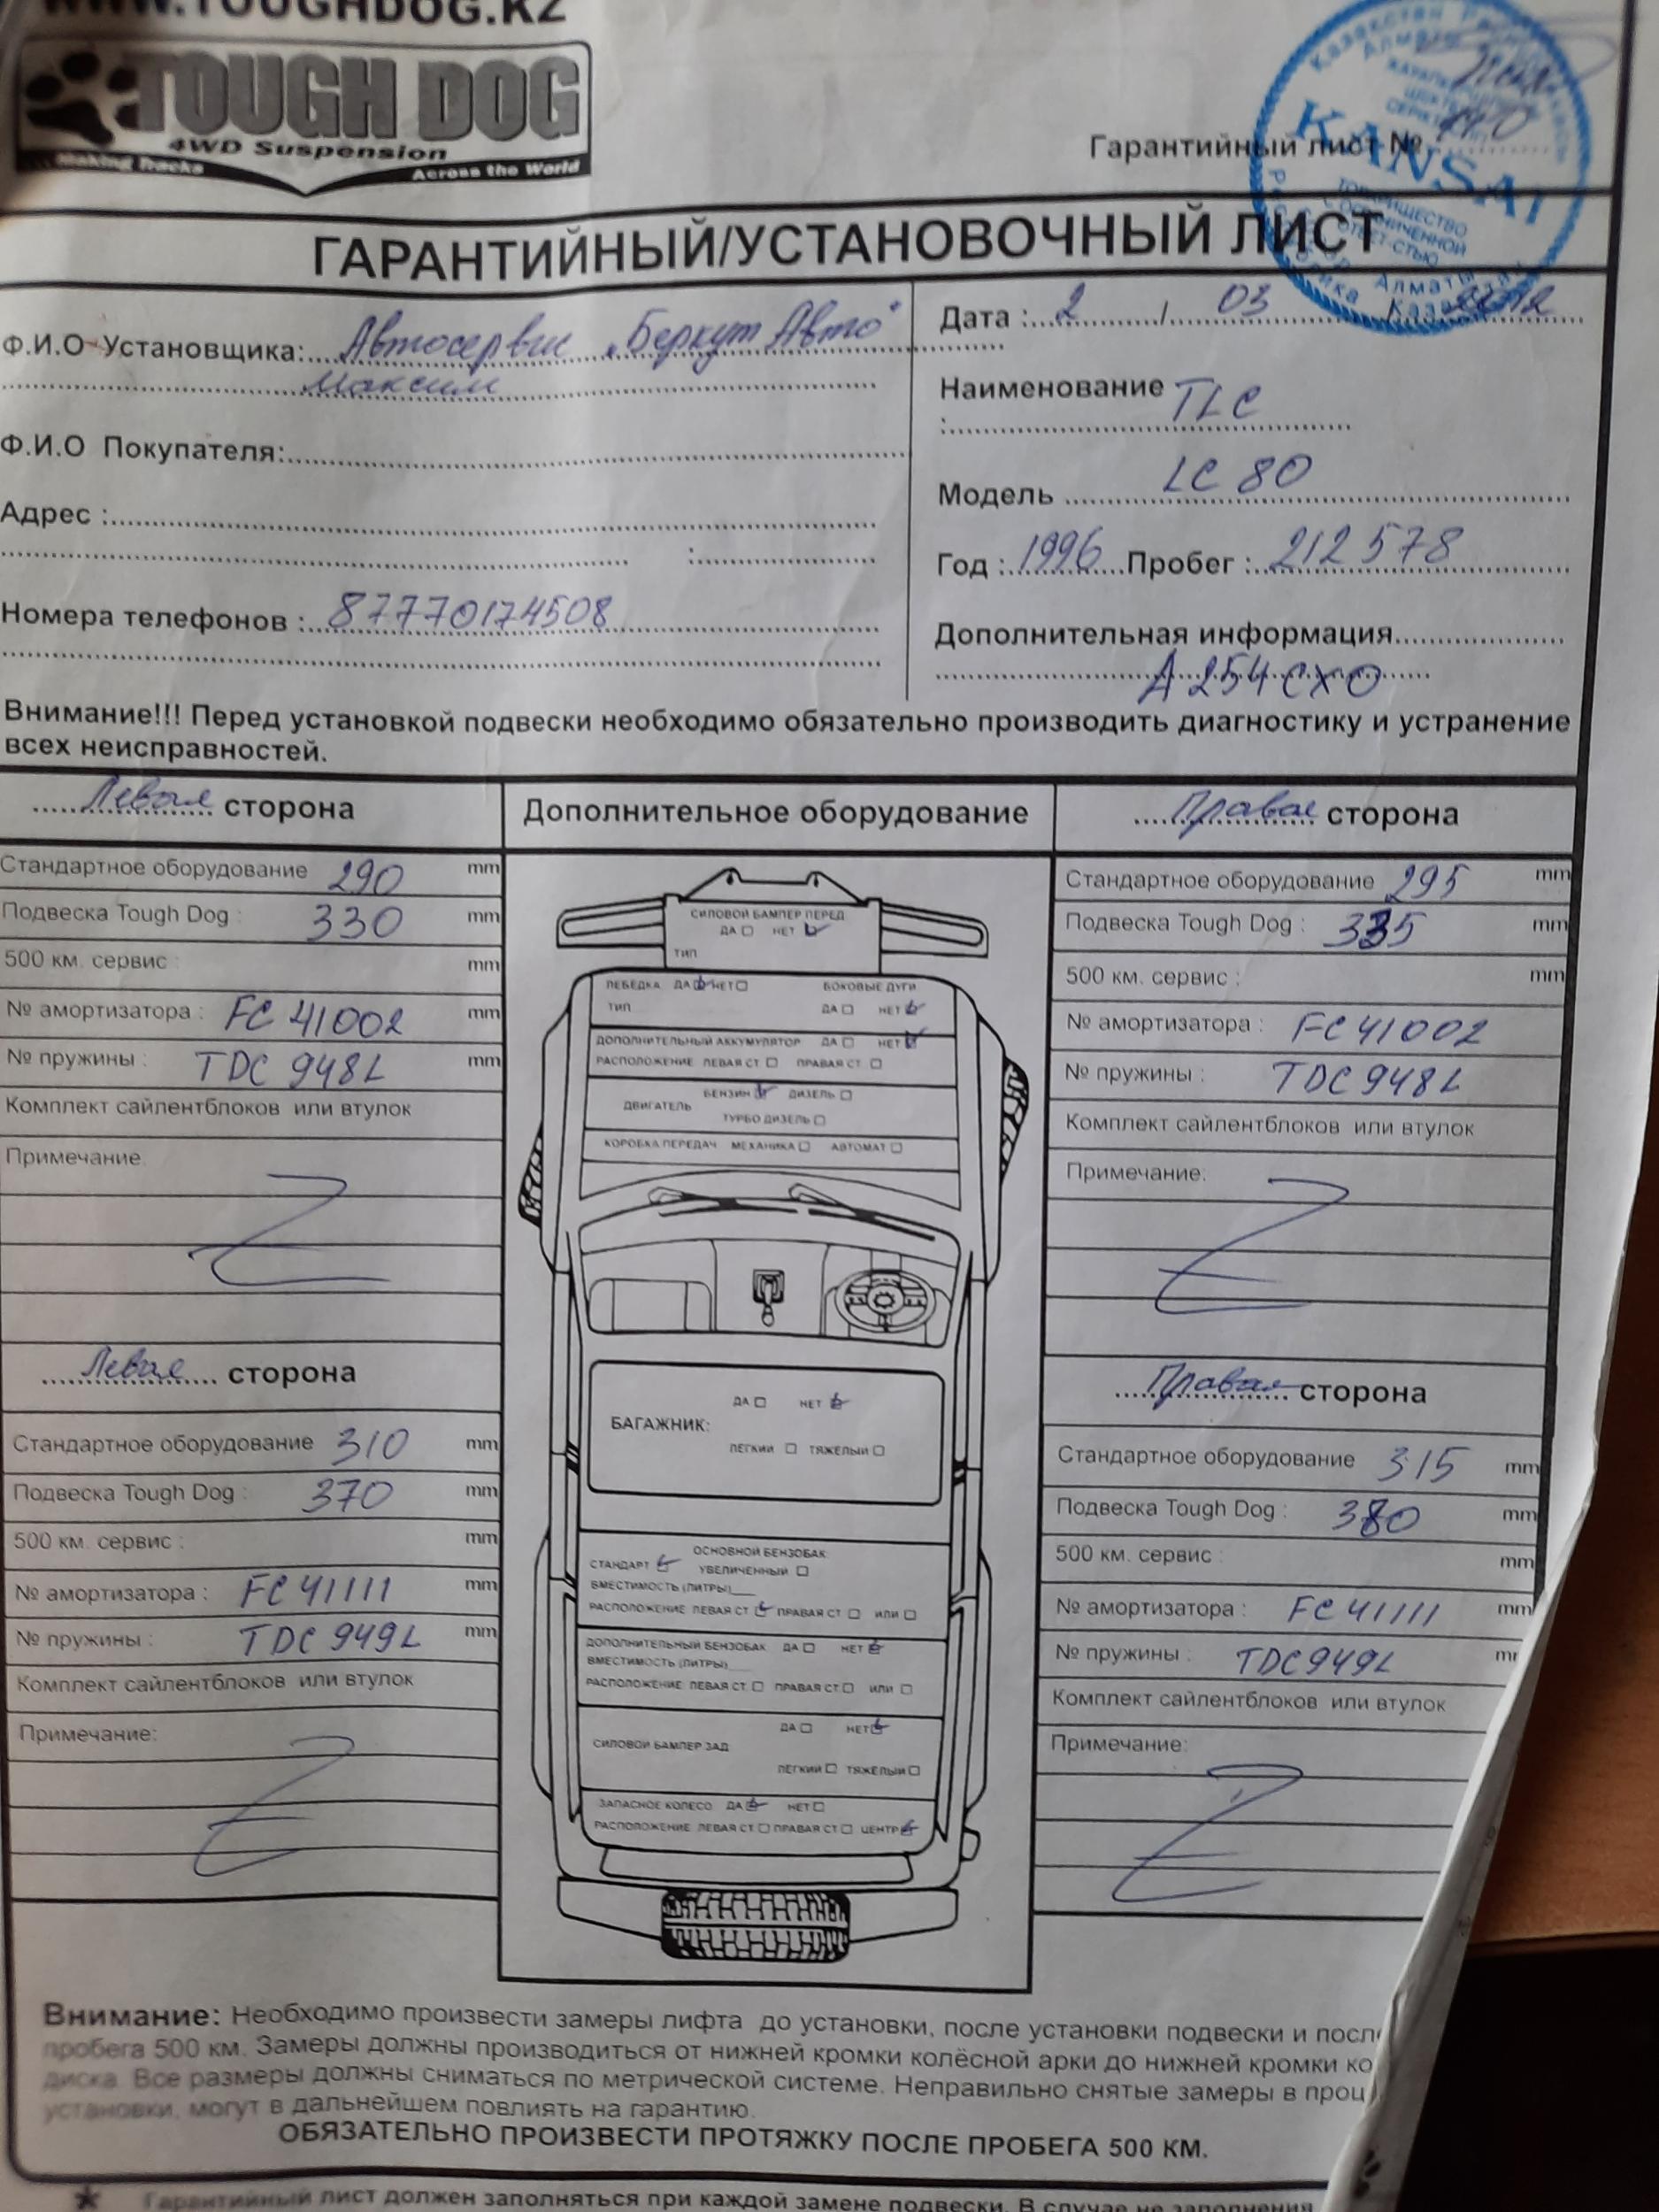 WWW.TOUGHDOG.KZ
TOUGH DOG
4WD Suspension
Making Tracks Across the World
Гарантийный лист №
KANSAI
ТОВАРИЩЕСТВО
С ОГРАНИЧЕННОЙ
ОТВЕТ-СТЬЮ
ГАРАНТИЙНЫЙ/УСТАНОВОЧНЫЙ ЛИСТ
Ф.И.О Установщика: Автосервис "Беркут Авто"
Максим
Ф.И.О Покупателя:
Адрес :
Номера телефонов : 87770174508
Дата : 2 / 03 2012
Наименование TLC
:
Модель LC 80
Год : 1996 Пробег : 212578
Дополнительная информация
A 254 CXO
Внимание!!! Перед установкой подвески необходимо обязательно производить диагностику и устранение
всех неисправностей.
Левая сторона
Стандартное оборудование 290 mm
Подвеска Tough Dog : 330 mm
500 км. сервис : mm
№ амортизатора : FC 41002 mm
№ пружины : TDC 948L mm
Комплект сайлентблоков или втулок
Примечание
Левая сторона
Стандартное оборудование 310 mm
Подвеска Tough Dog : 370 mm
500 км. сервис : mm
№ амортизатора : FC 41111 mm
№ пружины : TDC 949L mm
Комплект сайлентблоков или втулок
Примечание:
Дополнительное оборудование
СИЛОВОЙ БАМПЕР ПЕРЕД
ДА НЕТ
ТИП
ЛЕБЕДКА ДА НЕТ БОКОВЫЕ ДУГИ
ТИП ДА НЕТ
ДОПОЛНИТЕЛЬНЫЙ АККУМУЛЯТОР ДА НЕТ
РАСПОЛОЖЕНИЕ ЛЕВАЯ СТ ПРАВАЯ СТ
БЕНЗИН ДИЗЕЛЬ
ДВИГАТЕЛЬ
ТУРБО ДИЗЕЛЬ
КОРОБКА ПЕРЕДАЧ МЕХАНИКА АВТОМАТ
ДА НЕТ
БАГАЖНИК:
ЛЕГКИЙ ТЯЖЕЛЫЙ
ОСНОВНОЙ БЕНЗОБАК
СТАНДАРТ УВЕЛИЧЕННЫЙ
ВМЕСТИМОСТЬ (ЛИТРЫ)___
РАСПОЛОЖЕНИЕ ЛЕВАЯ СТ ПРАВАЯ СТ ИЛИ
ДОПОЛНИТЕЛЬНЫЙ БЕНЗОБАК ДА НЕТ
ВМЕСТИМОСТЬ (ЛИТРЫ)___
РАСПОЛОЖЕНИЕ ЛЕВАЯ СТ ПРАВАЯ СТ ИЛИ
ДА НЕТ
СИЛОВОЙ БАМПЕР ЗАД
ЛЕГКИЙ ТЯЖЕЛЫЙ
ЗАПАСНОЕ КОЛЕСО ДА НЕТ
РАСПОЛОЖЕНИЕ ЛЕВАЯ СТ ПРАВАЯ СТ ЦЕНТР
Правая сторона
Стандартное оборудование 295 mm
Подвеска Tough Dog : 335 mm
500 км. сервис : mm
№ амортизатора : FC 41002
№ пружины : TDC 948L
Комплект сайлентблоков или втулок
Примечание:
Правая сторона
Стандартное оборудование 315 mm
Подвеска Tough Dog : 380 mm
500 км. сервис : mm
№ амортизатора : FC 41111 mm
№ пружины : TDC 949L
Комплект сайлентблоков или втулок
Примечание:
Внимание: Необходимо произвести замеры лифта до установки, после установки подвески и посл
пробега 500 км. Замеры должны производиться от нижней кромки колёсной арки до нижней кромки ко
диска. Все размеры должны сниматься по метрической системе. Неправильно снятые замеры в проц
установки, могут в дальнейшем повлиять на гарантию.
ОБЯЗАТЕЛЬНО ПРОИЗВЕСТИ ПРОТЯЖКУ ПОСЛЕ ПРОБЕГА 500 КМ.
* Гарантийный лист должен заполняться при каждой замене подвески. В случае не заполнения